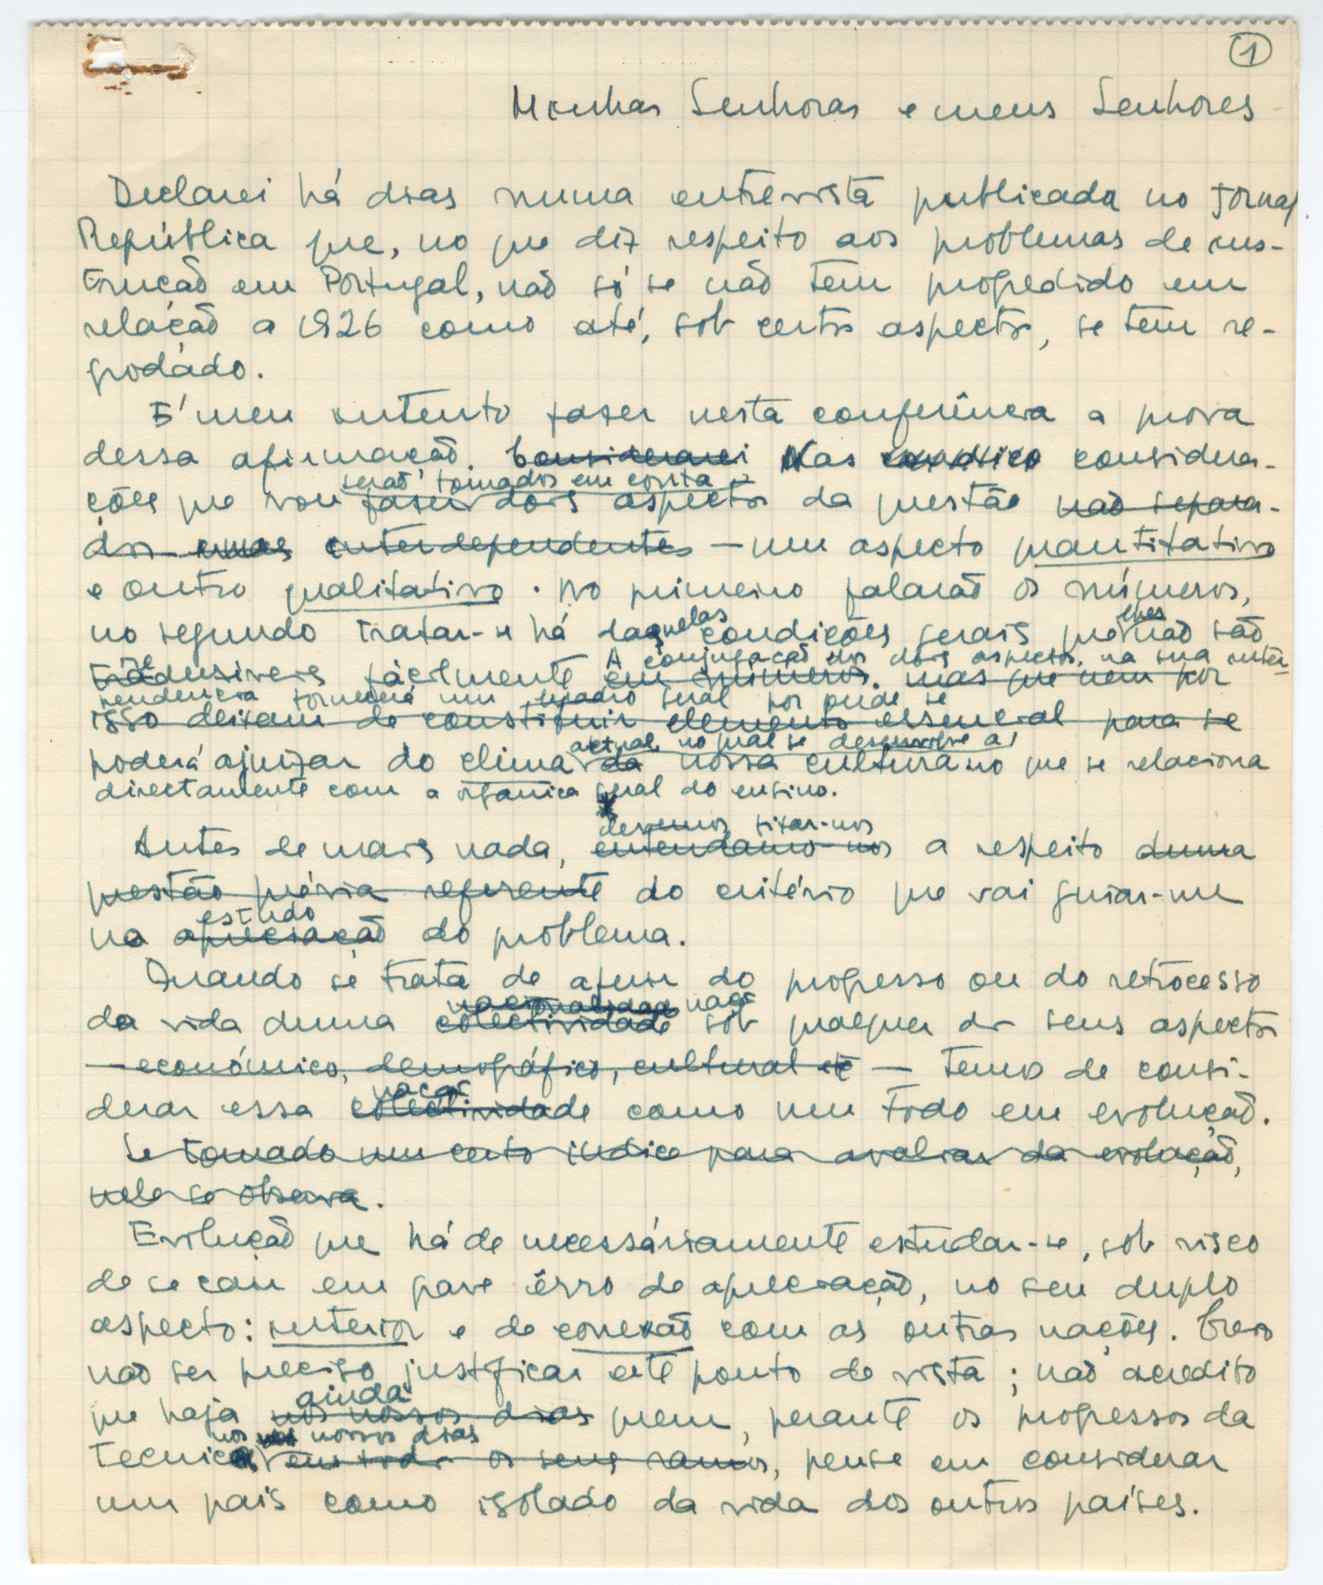 1
Minhas Senhoras e meus Senhores
Declarei há dias numa entrevista publicada no Jornal
República que, no que diz respeito aos problemas de ins-
trução em Portugal, não só se não tem progredido em
relação a 1926 como até, sob certos aspectos, se tem re-
gredido.
É meu intento fazer nesta conferência a prova
dessa afirmação. Considerarei Nas considera-
serão tomados em conta
ções que vou fazer dois aspectos da questão não separa-
dos mas interdependentes — um aspecto quantitativo
e outro qualitativo. No primeiro falarão os números,
quelas lhes
no segundo tratar-se há da condições gerais que não são
A conjugação dos dois aspectos, na sua inter-
traduzíveis fàcilmente em números. mas que nem por
pendência fornecerá um quadro geral por onde se
isso deixam de constituir elemento essencial para se
actual no qual se desenvolve a
poderá ajuizar do clima da nossa cultura no que se relaciona
directamente com a orgânica geral do ensino.
devemos fixar-nos
Antes de mais nada, entendamo-nos a respeito duma
questão prévia referente do critério que vai guiar-me
estudo
na apreciação do problema.
Quando se trata de aferir do progresso ou do retrocesso
nacionalidade nação
da vida duma colectividade sob qualquer dos seus aspectos
— económico, demográfico, cultural etc — temos de consi-
nação
derar essa colectividade como um todo em evolução.
Se tomado um certo índice para avaliar da evolução,
nele se observa.
Evolução que há de necessáriamente estudar-se, sob risco
de se cair em grave êrro de apreciação, no seu duplo
aspecto: interior e de conexão com as outras nações. Creio
não ser preciso justificar este ponto de vista; não acredito
ainda
que haja nos nossos dias quem, perante os progressos da
nos nossos dias
tecnica em todos os seus ramos, pense em considerar
um país como isolado da vida dos outros países.